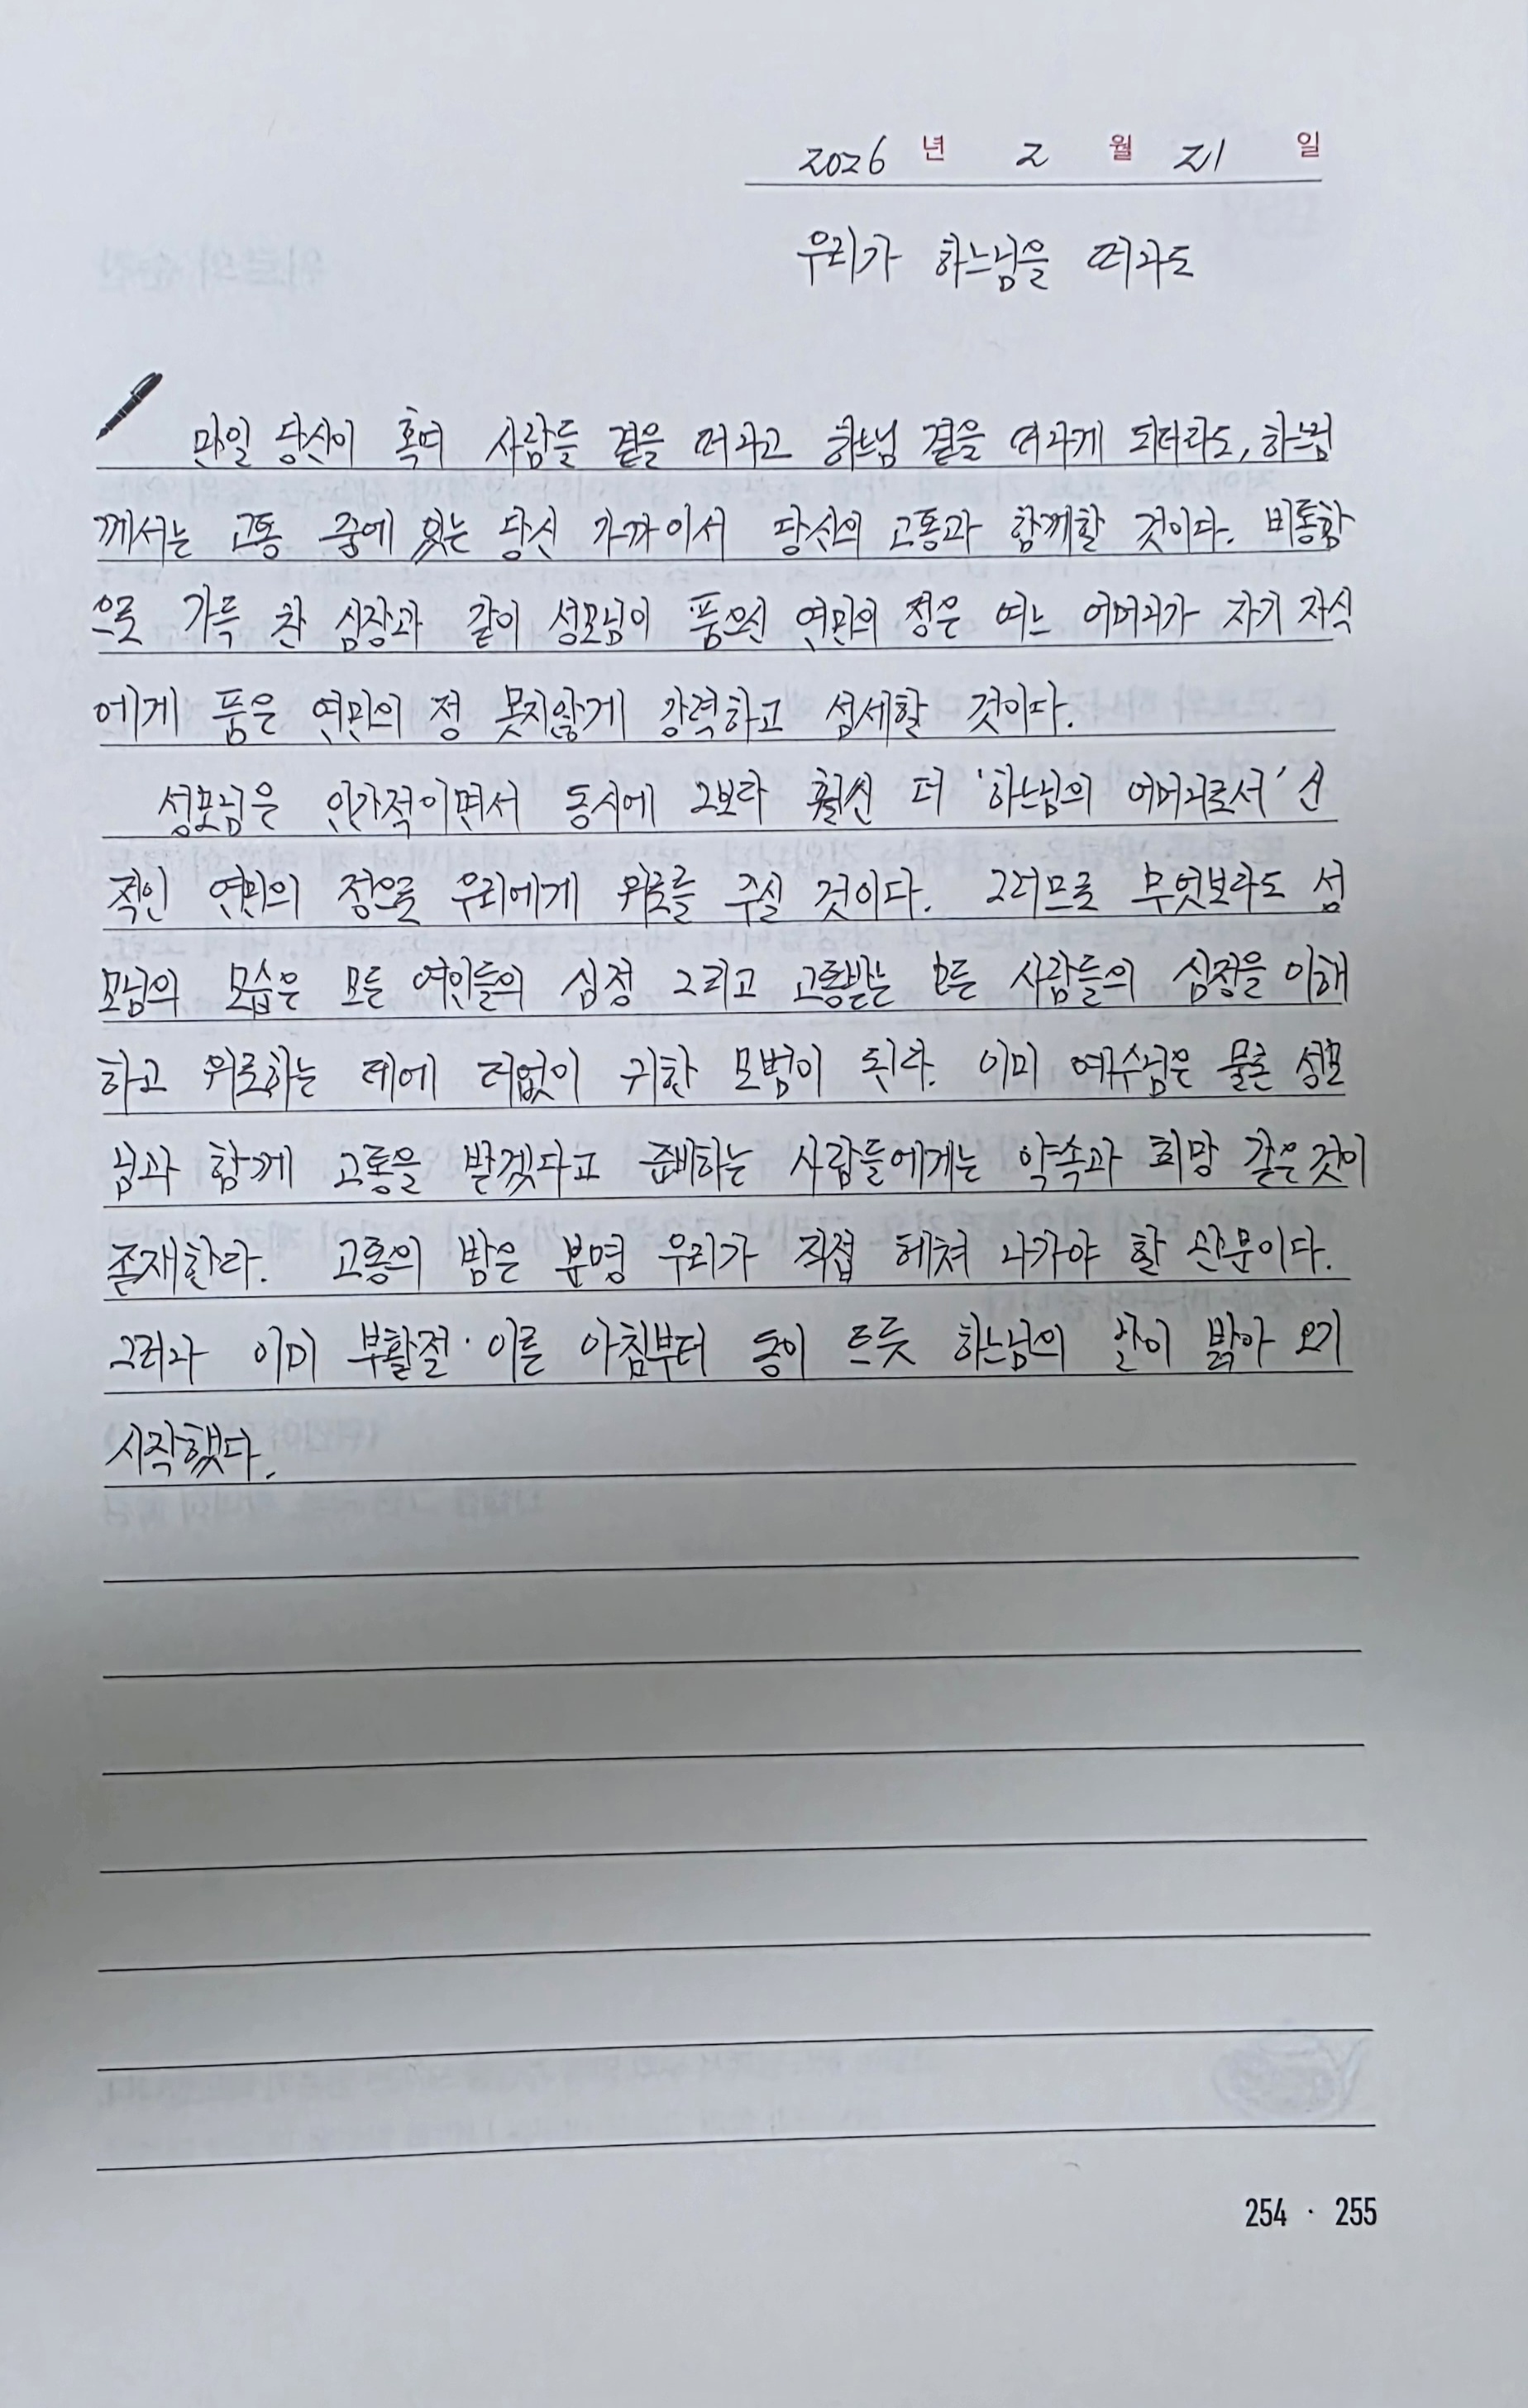 2026 년 2 월 21 일
우리가 하느님을 떠나도
만일 당신이 혹여 사람들 곁을 떠나고 하느님 곁을 떠나게 되더라도, 하느님
께서는 고통 중에 있는 당신 가까이서 당신의 고통과 함께할 것이다. 비통함
으로 가득 찬 심장과 같이 성모님이 품으신 연민의 정은 여느 어머니가 자기 자식
에게 품은 연민의 정 못지않게 강력하고 섬세할 것이다.
성모님은 인간적이면서 동시에 그보다 훨씬 더 '하느님의 어머니로서' 신
적인 연민의 정으로 우리에게 위로를 주실 것이다. 그러므로 무엇보다도 성
모님의 모습은 모든 여인들의 심정 그리고 고통받는 모든 사람들의 심정을 이해
하고 위로하는 데에 더없이 귀한 모범이 된다. 이미 예수님은 물론 성모
님과 함께 고통을 받겠다고 준비하는 사람들에게는 약속과 희망 같은 것이
존재한다. 고통의 밤은 분명 우리가 직접 헤쳐 나가야 할 관문이다.
그러나 이미 부활절 · 이른 아침부터 동이 트듯 하느님의 날이 밝아 오기
시작했다.
254 · 255